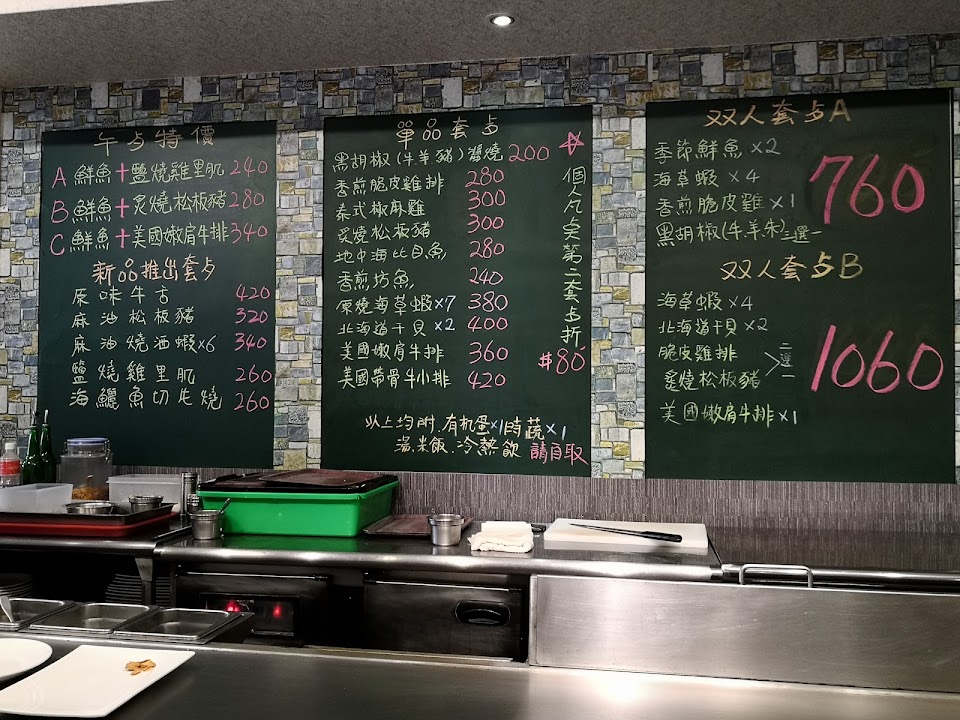 午歺特價
A 鮮魚+鹽燒雞里肌 240
B 鮮魚+炙燒松板豬 280
C 鮮魚+美國嫩肩牛排 340
新品推出套歺
原味牛 420
麻油松板豬 320
麻油燒酒蝦×6 340
鹽燒雞里肌 260
海鱺魚切片燒 260
單品套歺
黑胡椒(牛羊豬)醬燒 200
香煎脆皮雞排 280
泰式椒麻雞 300
炙燒松板豬 300
地中海比目魚 280
香煎坊魚 240
原燒海草蝦×7 380
北海道干貝×2 400
美國嫩肩牛排 360
美國帶骨牛小排 420
以上均附.有机蛋×1時蔬×1
湯.米飯.冷熱飲 請自取
☆個人点第二套歺折#80
双人套歺A
季節鮮魚×2
海草蝦×4
香煎脆皮雞×1
黑胡椒(牛.羊.朱)三選一
760
双人套歺B
海草蝦×4
北海道干貝×2
脆皮雞排
炙燒松板豬
二選一
美國嫩肩牛排×1
1060